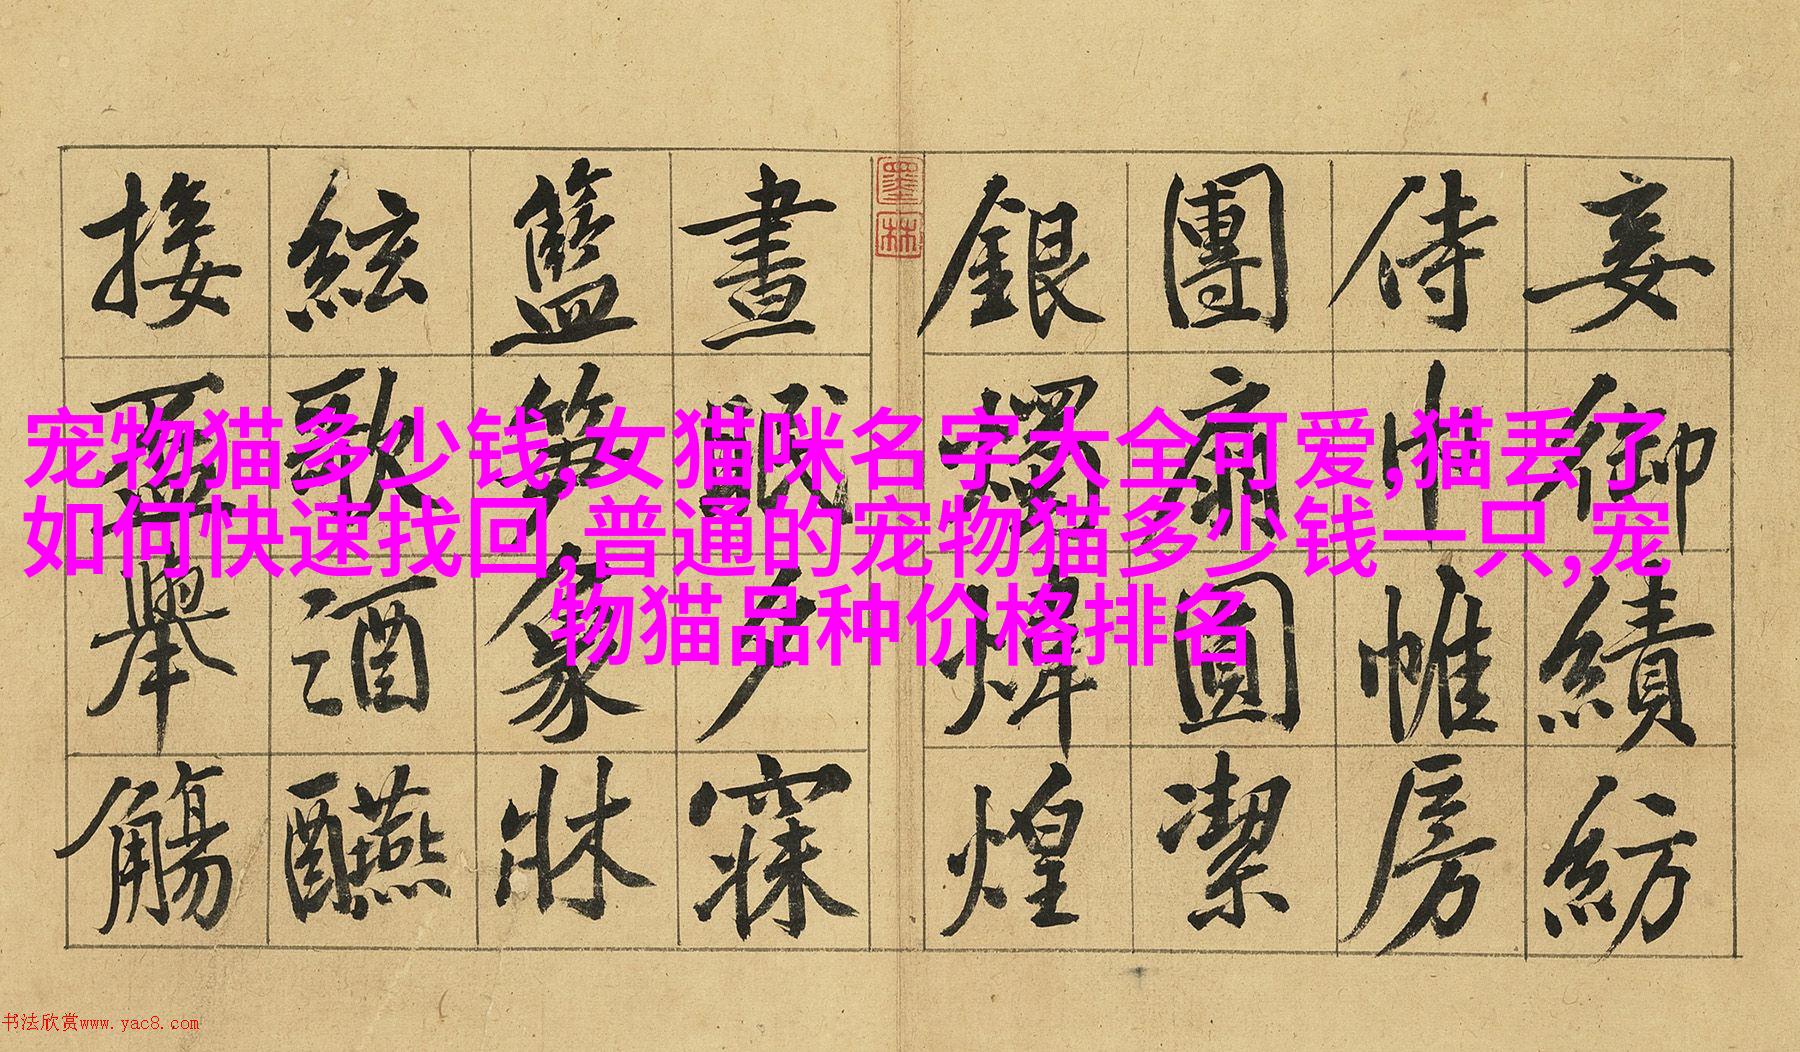 妾御績紡
侍巾帷房
團扇圓潔
銀燭煒煌
墨林
晝眠夕寐
籃笋象牀
絃歌酒醼
接盃舉觴
宠物猫多少钱,女猫咪名字大全可爱,猫丢了
如何快速找回,普通的宠物猫多少钱一只,宠
物猫品种价格排名
书法欣赏www.yac8.com